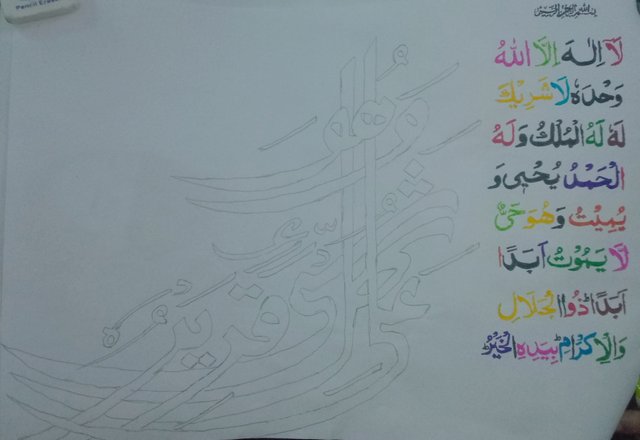 Pencil Eraser
بسم الله الرحمن الرحيم
لَآ اِلٰهَ اِلَّا اللهُ
وَحْدَهٗ لَا شَرِيْكَ
لَهٗ لَهُ الْمُلْكُ وَلَهُ
الْحَمْدُ يُحْيٖ وَ
يُمِيْتُ وَهُوَ حَیٌّ
لَّا يَمُوْتُ اَبَدًا
اَبَدًا ذُوالْجَلَالِ
وَالْاِكْرَامِ بِيَدِهِ الْخَيْرُ
وهو على كل شىء قدير